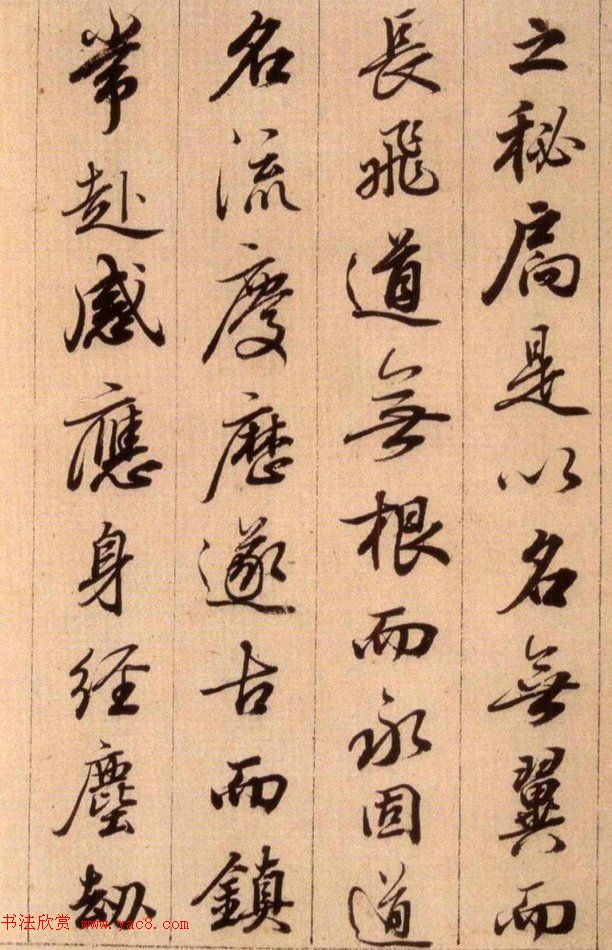 之秘扃是以名無翼而
長飛道無根而永固道
名流慶歷遂古而鎮
常赴感應身經塵劫
书法欣赏 www.yac8.com